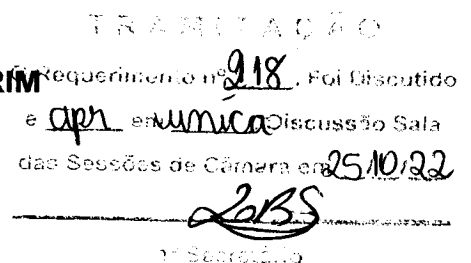 TRAMITAÇÃO
RIM O Requerimento nº 918. Foi Discutido
e apr em única Discussão Sala
das Sessões de Câmara em 25/10/22
1º Secretário